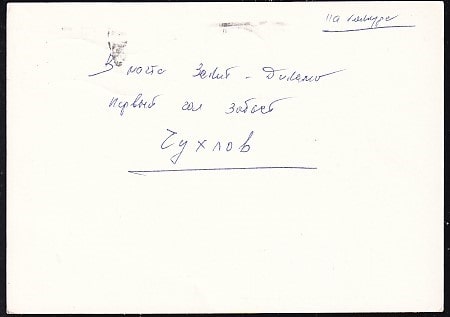 На конкурс
В матче Зенит - Динамо
первый гол забьёт
Чухлов